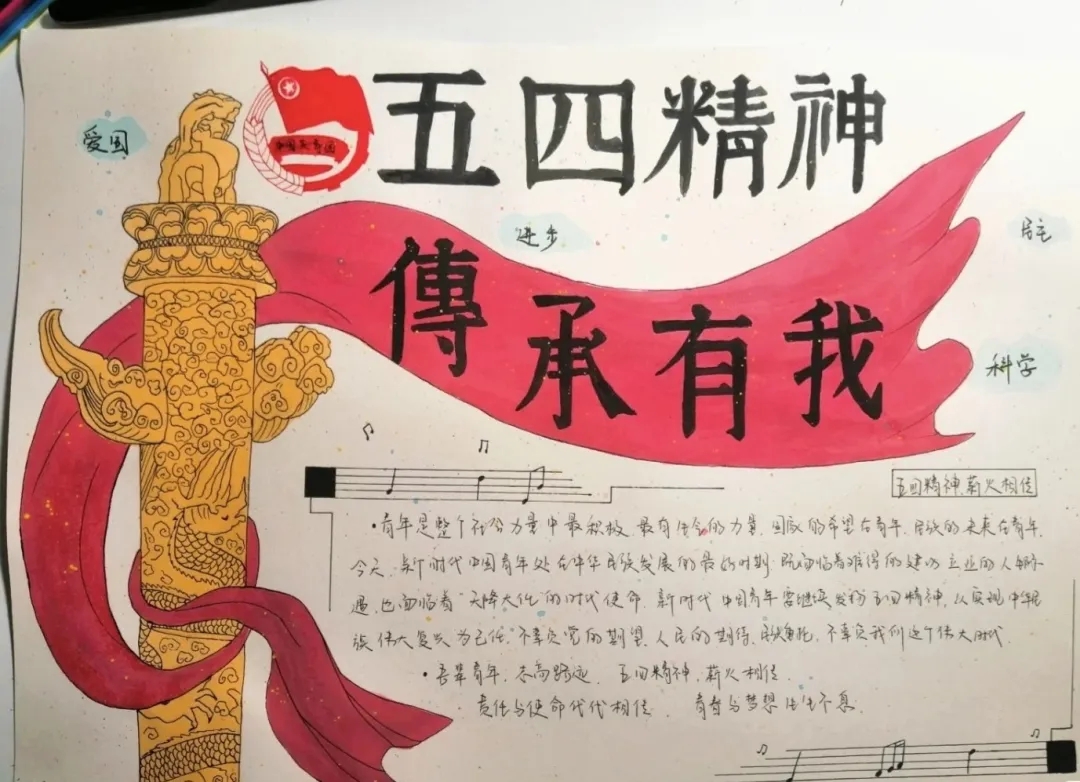 五四精神
傳承有我
爱国
中国共青团
进步
民主
科学
五四精神.薪火相传
·青年是整个社会力量中最积极、最有生命的力量,国家的希望在青年,民族的未来在青年.
今天,新时代中国青年处在中华民族发展的最好时期,既面临着难得的建功立业的人生际
遇,也面临着"天降大任"的时代使命.新时代中国青年要继续发扬五四精神,以实现中华民
族伟大复兴为己任,不辜负党的期望、人民的期待、民族重托,不辜负我们这个伟大时代
·吾辈青年,不尚路远. 五四精神,薪火相传.
责任与使命代代相传. 青春与梦想生生不息.